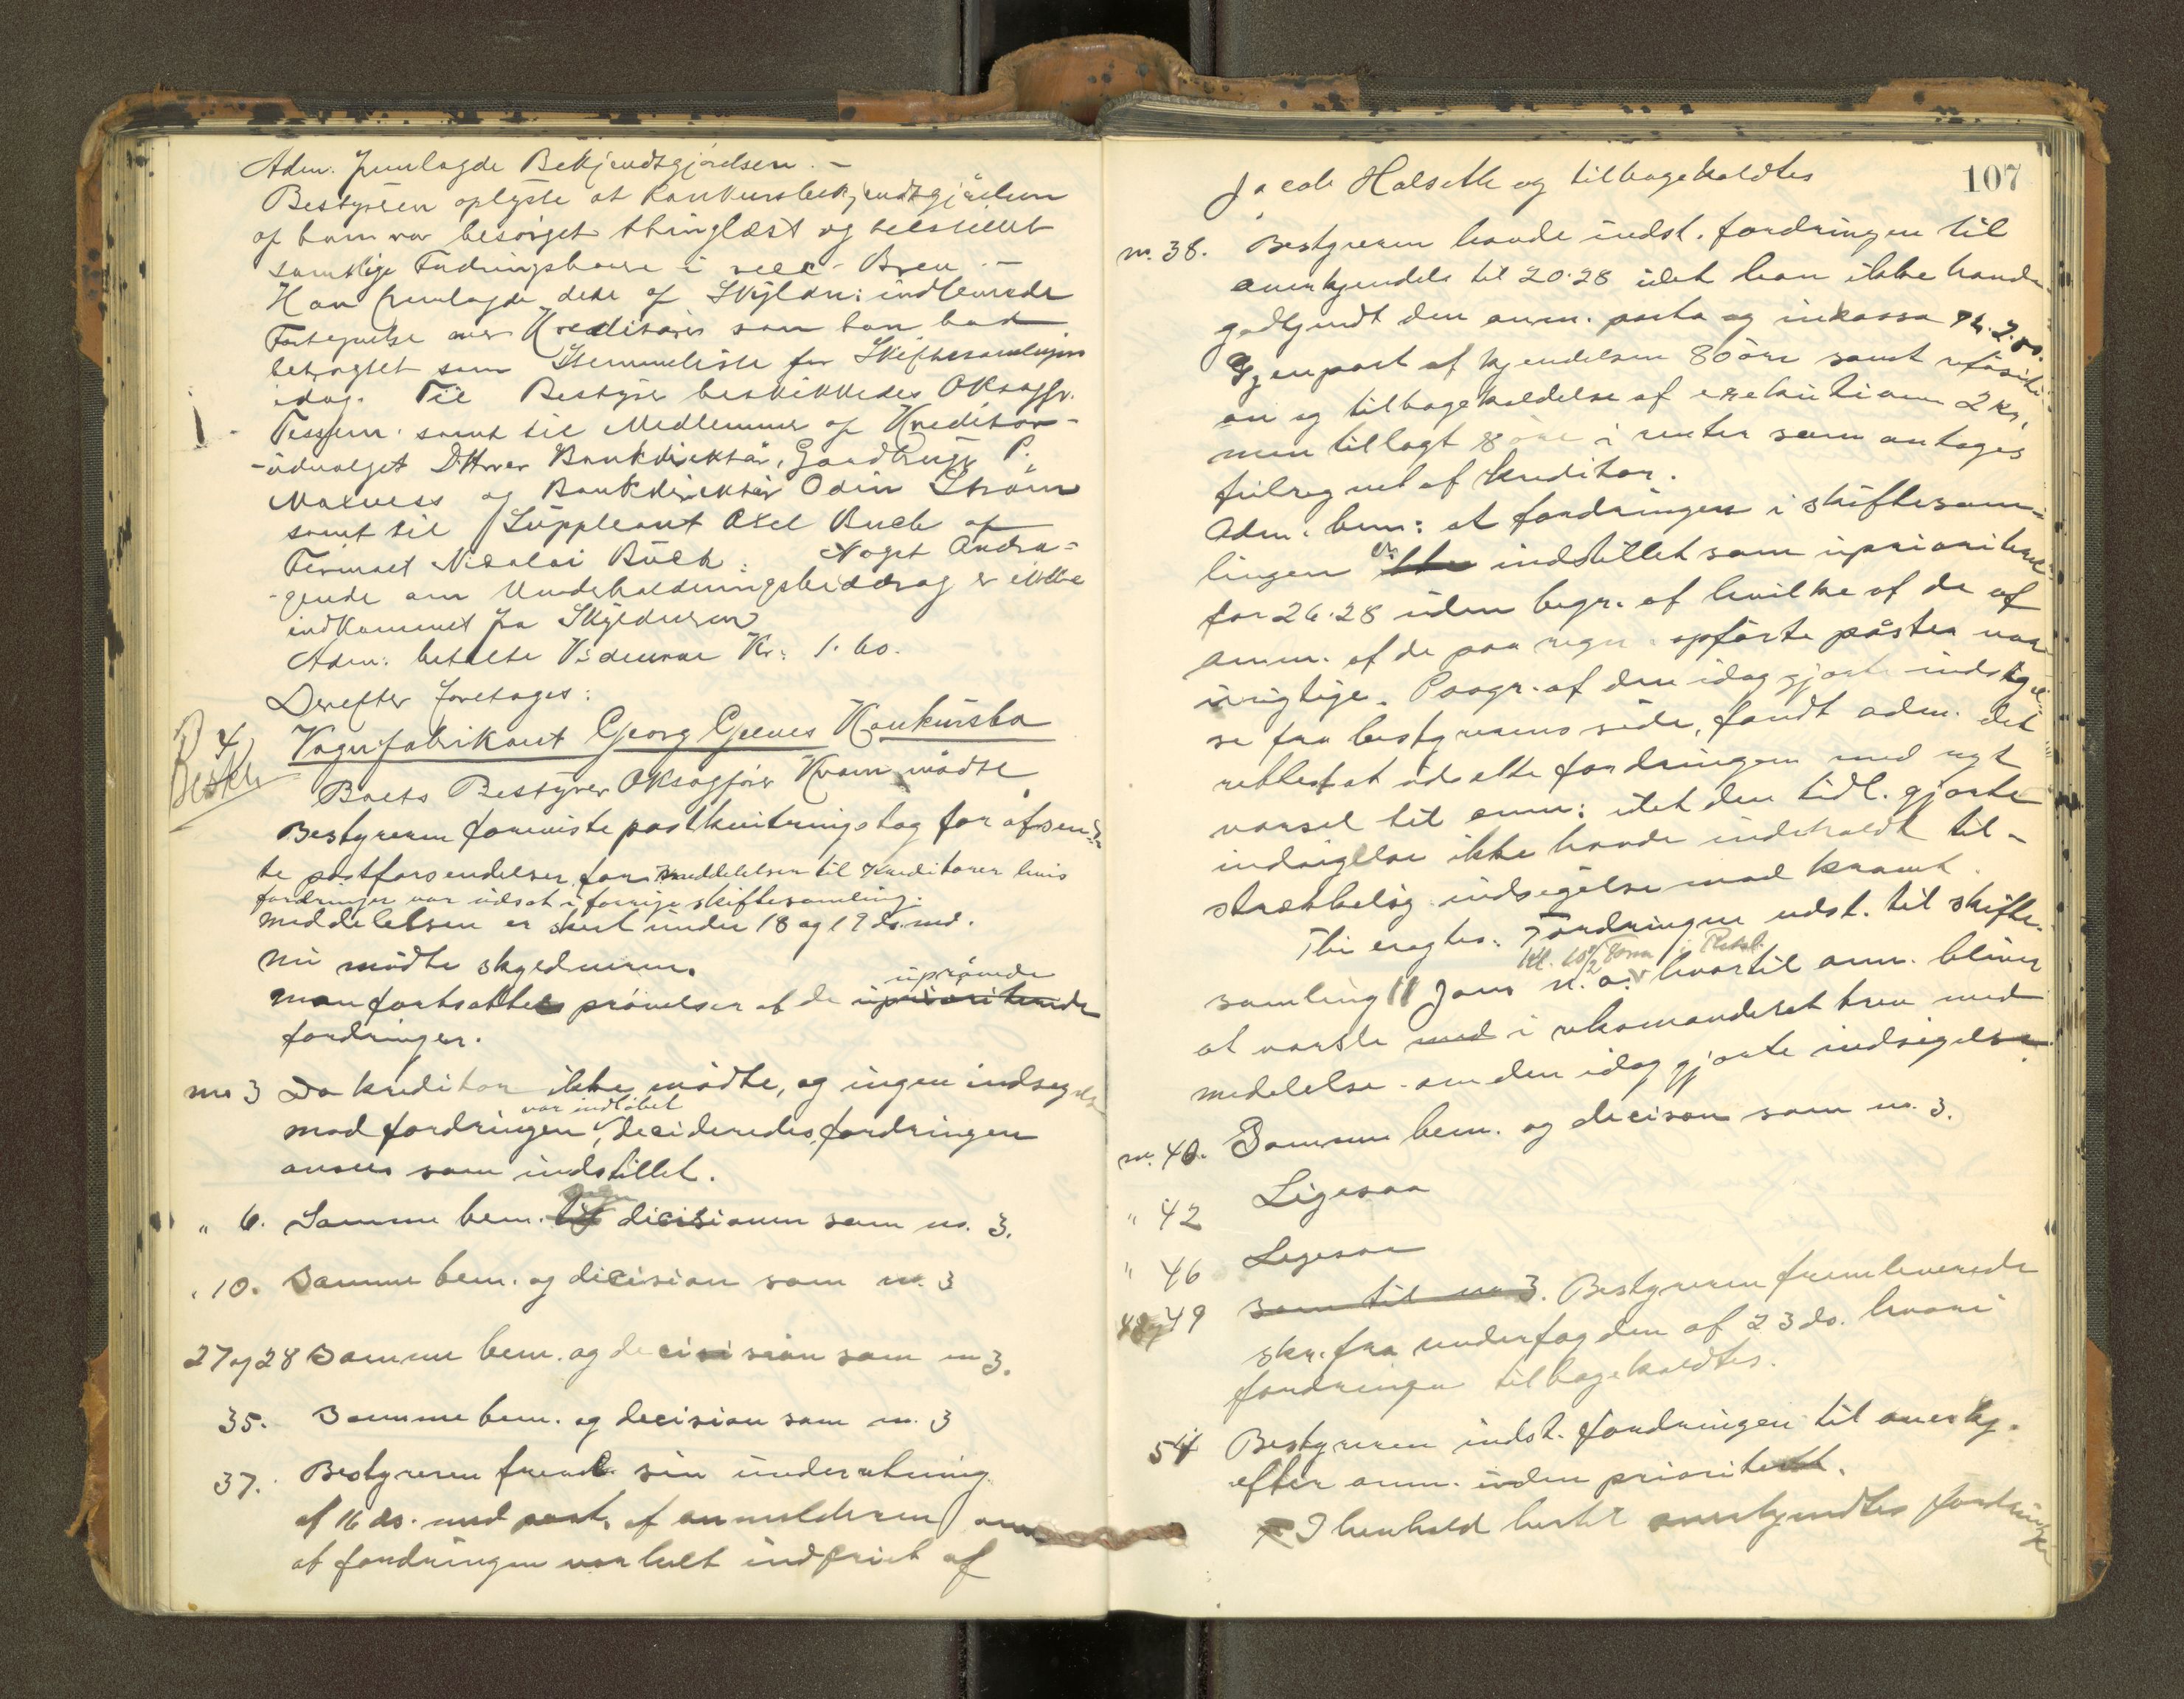 Adm. fremlagde Bekjendtgjørelsen. –
Bestyreren oplyste at Konkursbekjendtgjørelsen
af ham var besørget thinglæst og tilstillet
samtlige Fordringshavere i rec. Brev. –
Han fremlagde dede af Skyldn: indleverede
Fortegnelse over Kreditorer som han bad
betragtet som Stemmeliste for Skiftesamlingen
idag. Til Bestyrer beskikkedes OKsagfr.
Tessem samt til Medlemmer af Kreditor-
-udvalget DHrrer Bankdirektør, Gaardbruger P.
Maxness og Bankdirektør Odin Strøm
samt til Suppleant Axel Buch af
Firmaet Nicolai Buch. Noget Andra-
-gende om Underholdningsbidrag er ikke
indkommet fra Skyldneren
Adm: betalte Vidnerne Kr: 1.60.
Derefter foretages:
4/ Beskr
Vognfabrikant Georg Grenes Konkursbo
Boets Bestyrer OKsagfører Kvam mødte
Bestyreren foreviste postkvitteringsbog for afsen-
te postforsendelser for meddelelser til Kreditorer hvis
fordringer var udsat i forrige skiftesamling.
meddelelsen er skeet under 18 og 19 ds. md.
Nu mødte skyldneren.
uprøvede
man fortsatte prøvelsen af de upriориterede
fordringer.
no 3 Da kreditor ikke mødte, og ingen indsigelse
var indløbet
mod fordringen, decideredes, fordringen
ansees som indstillet.
" 6. Samme bem. og dicisionen som no. 3.
" 10. Samme bem. og dicision som no. 3
27 og 28 Samme bem. og decision som no 3.
35. Samme bem. og decision som no. 3
37. Bestyreren freml. sin underretning
af 16 ds. med paat. af anmelderen om
at fordringen var helt indfriet af
107
Jacob Halseth og tilbagekaldtes
no. 38. Bestyreren havde indst. fordringen til
anerkjendelse til 20.28 idet han ikke havde
godkjendt den anm. porto og inkasso Kr. 2.00.
Gjenpart af kjendelsen 80 øre samt
on og tilbagekaldelse af exekutionen 2 kr,
men tillagt 8 øre i renter som antages
feilregnet af kreditor.
Adm. bem: at fordringen i skiftesam-
lingen er indstillet som uprioriteret
for 26.28 uden begr. af hvilke af de af
anm. af de paa regn. opførte poster var
urigtige. Paagr. af den idag gjorte indsigel-
se fra bestyrerens side, fandt adm. det
rettest at udsætte fordringen med nyt
varsel til anm: idet den tidl. gjorte
indsigelse ikke havde indeholdt til-
strækkelig indsigelse mod kravet.
Thi eragtes: Fordringen udst. til skifte-
Kl. 10 1/2 Form i Retsl.
samling 11 Jans n. a. hvortil anm. bliver
at varsle med i rekomanderet brev med
medelelse om den idag gjorte indsigelse
no. 40. Samme bem. og decison som no. 3.
" 42 Ligesaa
" 46 Ligesaa
48 og 49 Som til no 3. Bestyreren fremleverede
skr. fra underfogden af 23 ds. hvori
fordringen tilbagekaldtes.
54 Bestyreren indst. fordringen til anerkj.
efter anm. uden prioritet.
I henhold hertil anerkjendtes fordringen